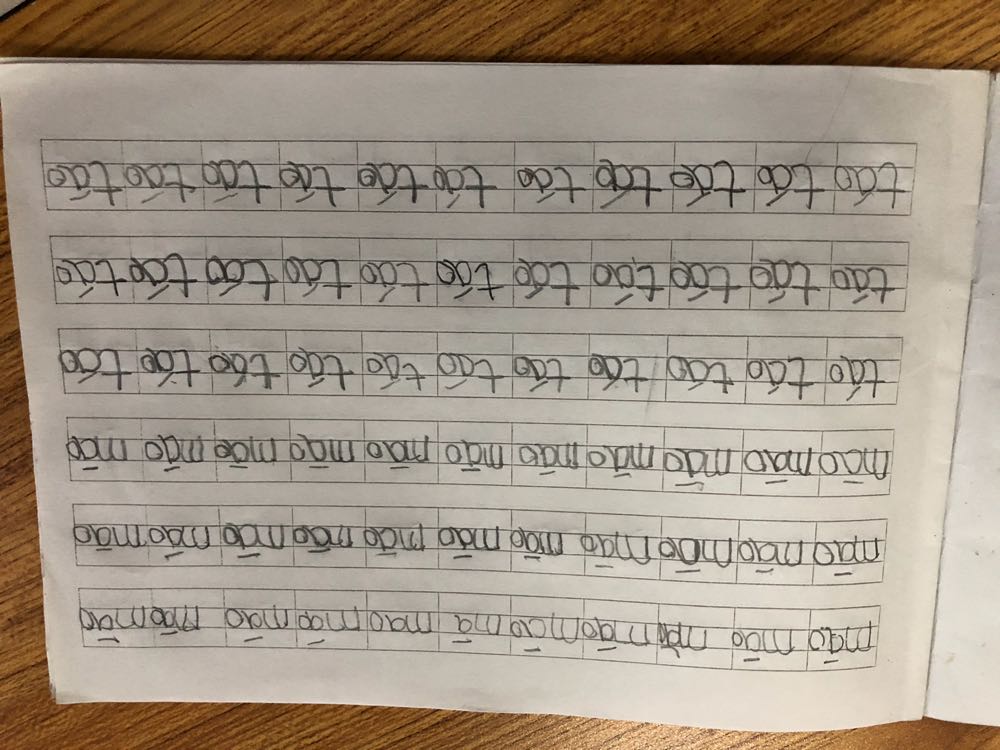 māo māo māo māo māo mā mao māo māo māo māo
māo māo māo māo māo māo māo māo māo māo māo
māo māo māo māo māo māo māo māo māo māo māo
táo táo táo táo táo táo táo táo táo táo táo
táo táo táo táo táo táo táo táo táo táo táo
táo táo táo táo táo táo táo táo táo táo táo